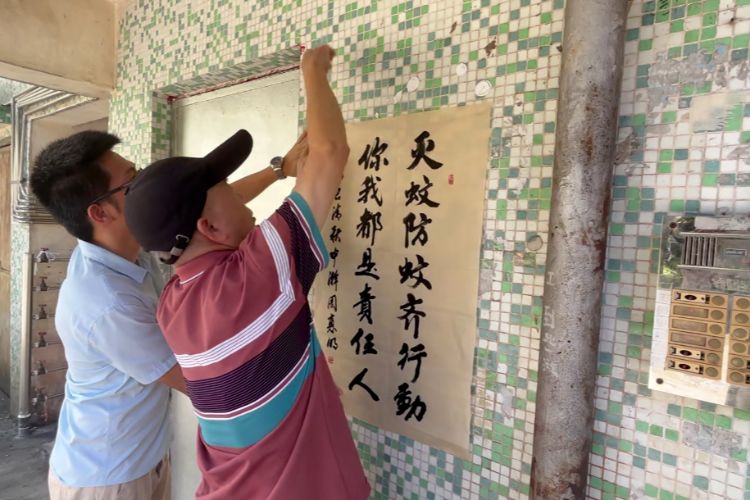 灭蚊防蚊齐行动
你我都是責任人